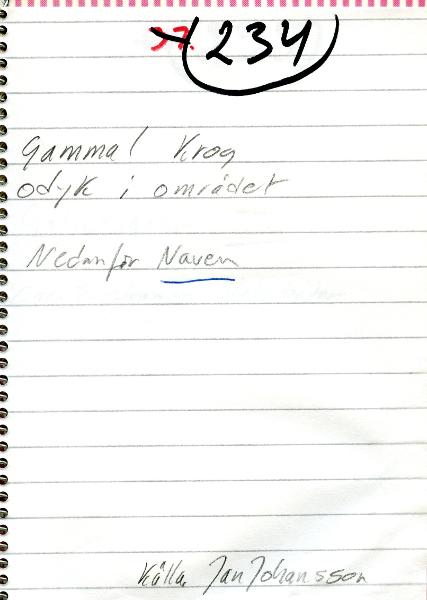 37. 234
Gammal Krog
odyk i området
Nedanför Naven
Källa Jan Johansson